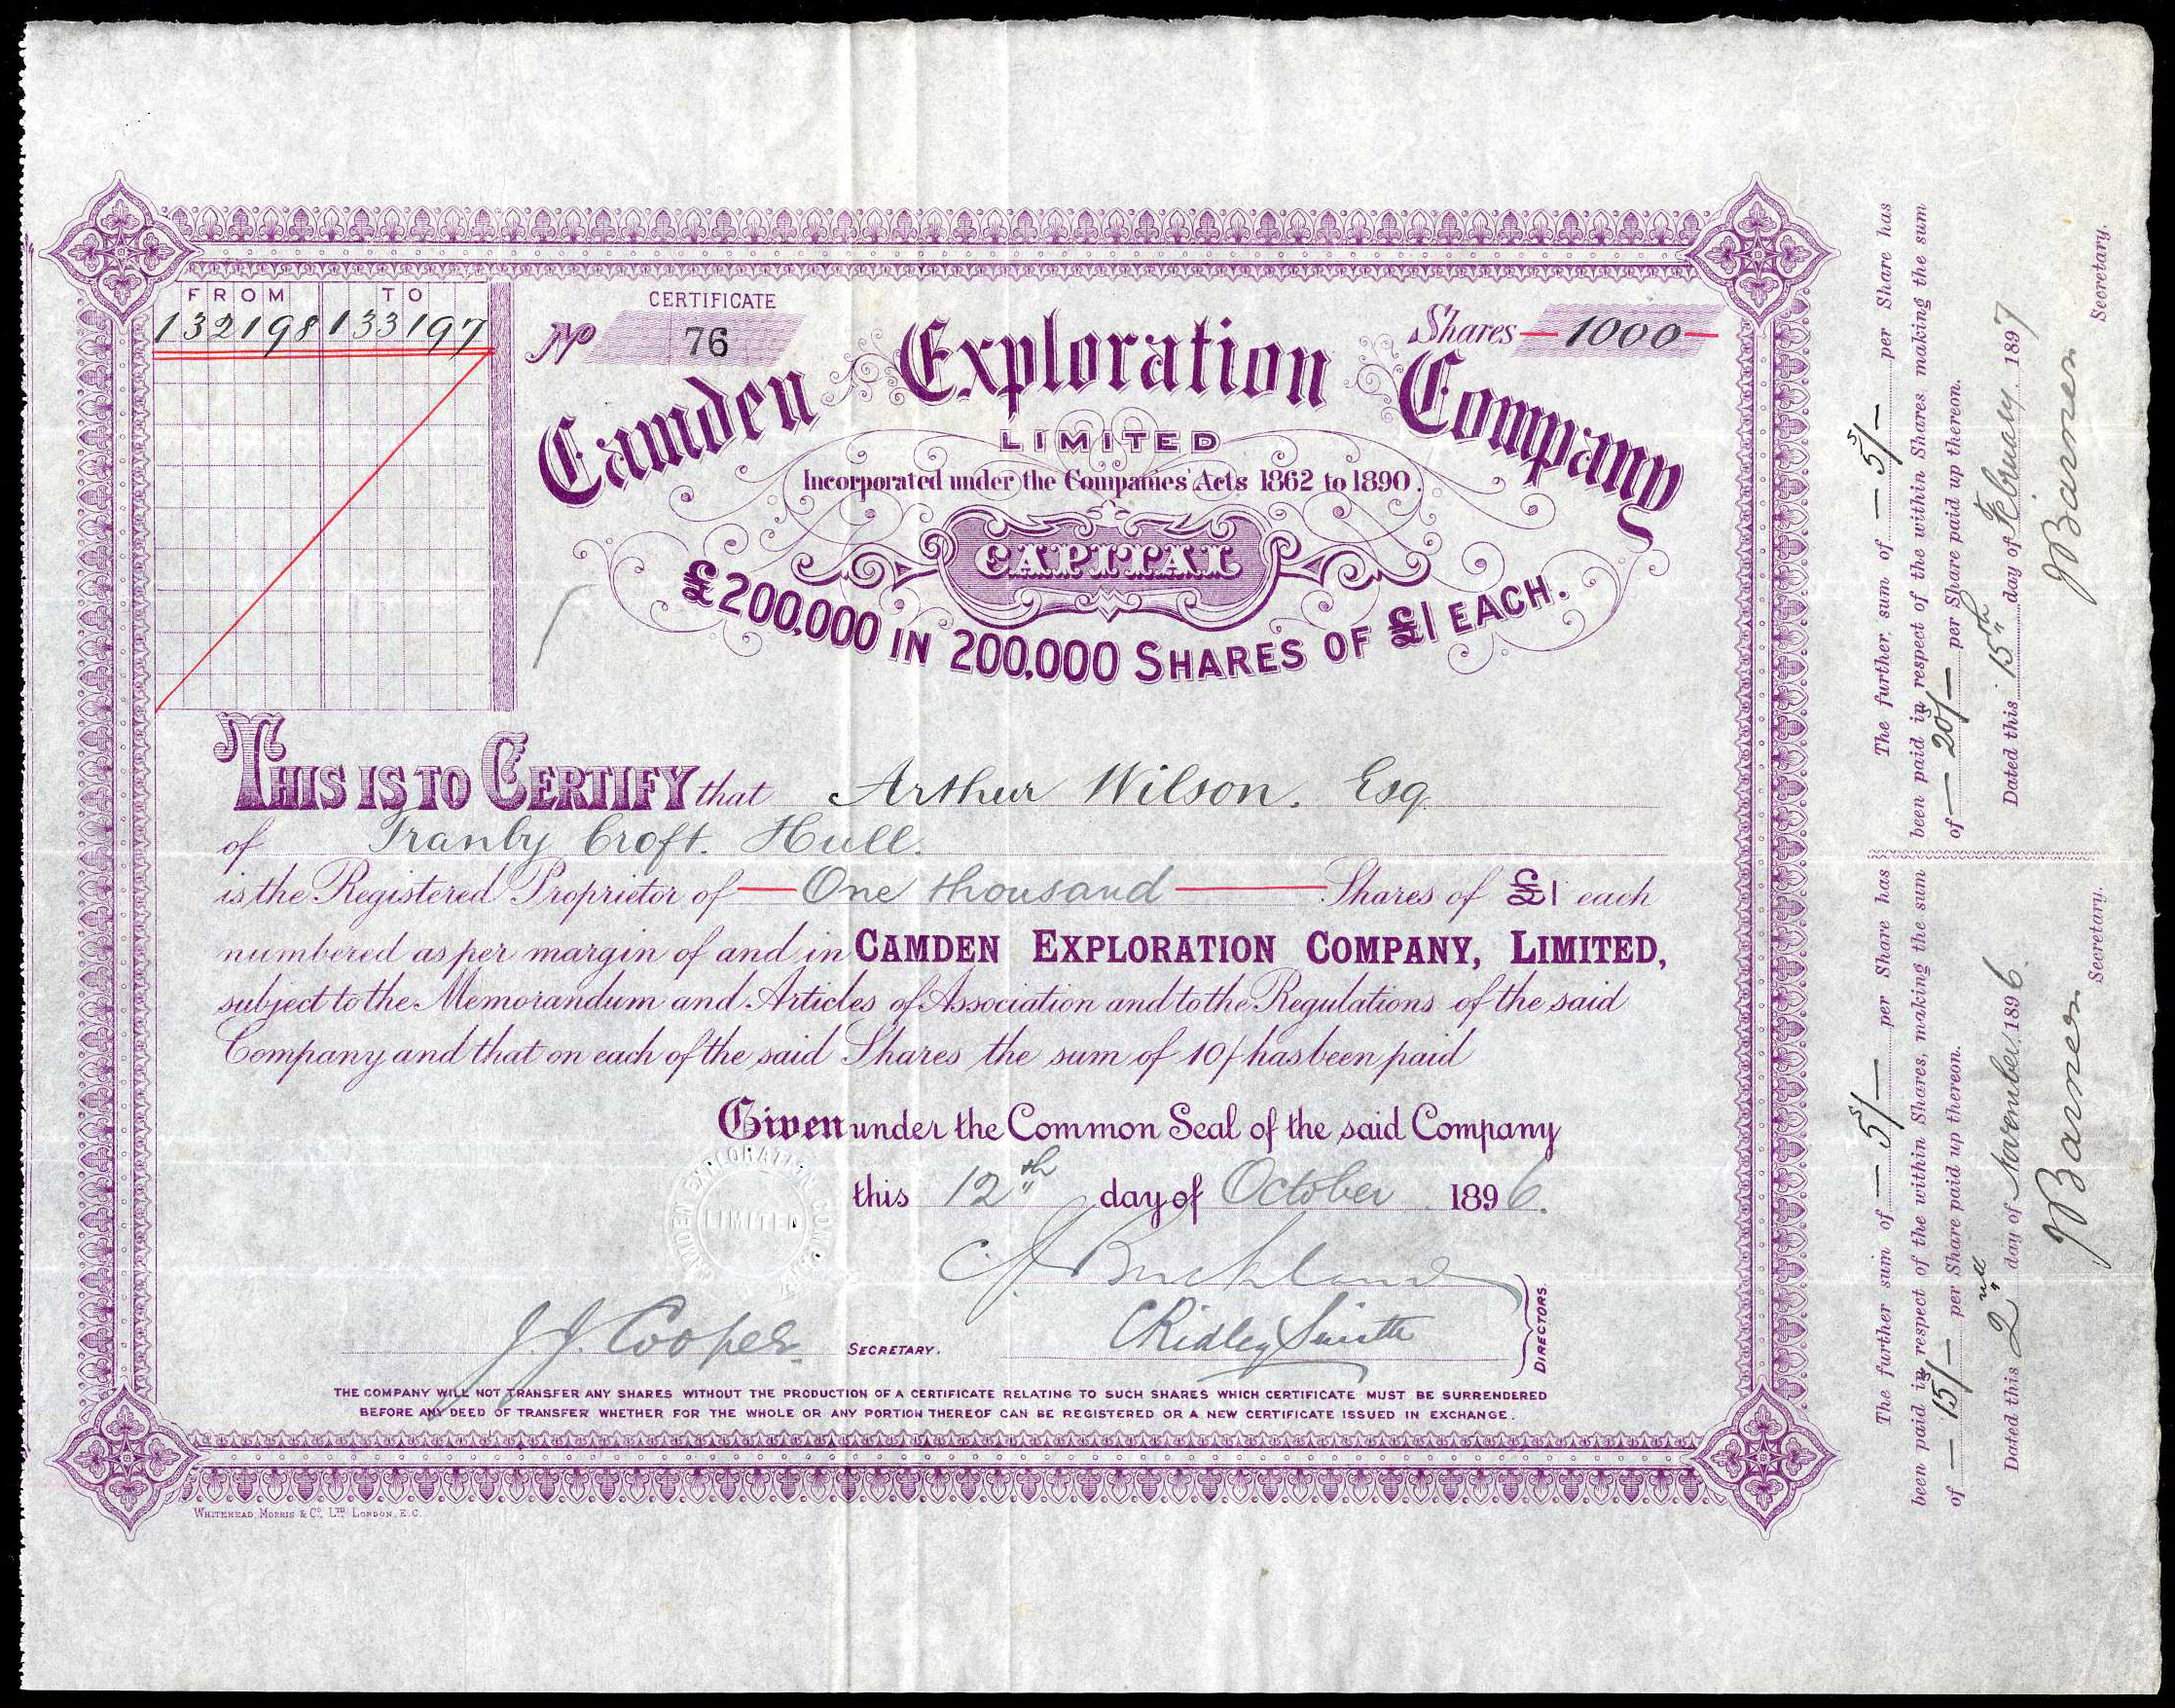 FROM TO
132198 133197
CERTIFICATE
No 76
Shares 1000
Camden Exploration Company
LIMITED
Incorporated under the Companies' Acts 1862 to 1890.
CAPITAL
£200,000 IN 200,000 SHARES OF £1 EACH.
THIS IS TO CERTIFY that Arthur Wilson. Esq
of Tranby Croft. Hull.
is the Registered Proprietor of — One thousand — Shares of £1 each
numbered as per margin of and in CAMDEN EXPLORATION COMPANY, LIMITED,
subject to the Memorandum and Articles of Association and to the Regulations of the said
Company and that on each of the said Shares the sum of 10/- has been paid
Given under the Common Seal of the said Company
this 12th day of October 1896.
CAMDEN EXPLORATION COMPANY
LIMITED
C. J. Buckland
J. J. Cooper SECRETARY. C Ridley Smith
DIRECTORS.
THE COMPANY WILL NOT TRANSFER ANY SHARES WITHOUT THE PRODUCTION OF A CERTIFICATE RELATING TO SUCH SHARES WHICH CERTIFICATE MUST BE SURRENDERED
BEFORE ANY DEED OF TRANSFER WHETHER FOR THE WHOLE OR ANY PORTION THEREOF CAN BE REGISTERED OR A NEW CERTIFICATE ISSUED IN EXCHANGE.
WHITEHEAD, MORRIS & Co. LTD. LONDON, E.C.
The further sum of — 5/- — per Share has
been paid in respect of the within Shares, making the sum
of — 15/- — per Share paid up thereon.
Dated this 2nd day of November 1896.
J Barnes
Secretary.
The further sum of — 5/- — per Share has
been paid in respect of the within Shares, making the sum
of — 20/- — per Share paid up thereon.
Dated this 15th day of February 1897
J Barnes
Secretary.